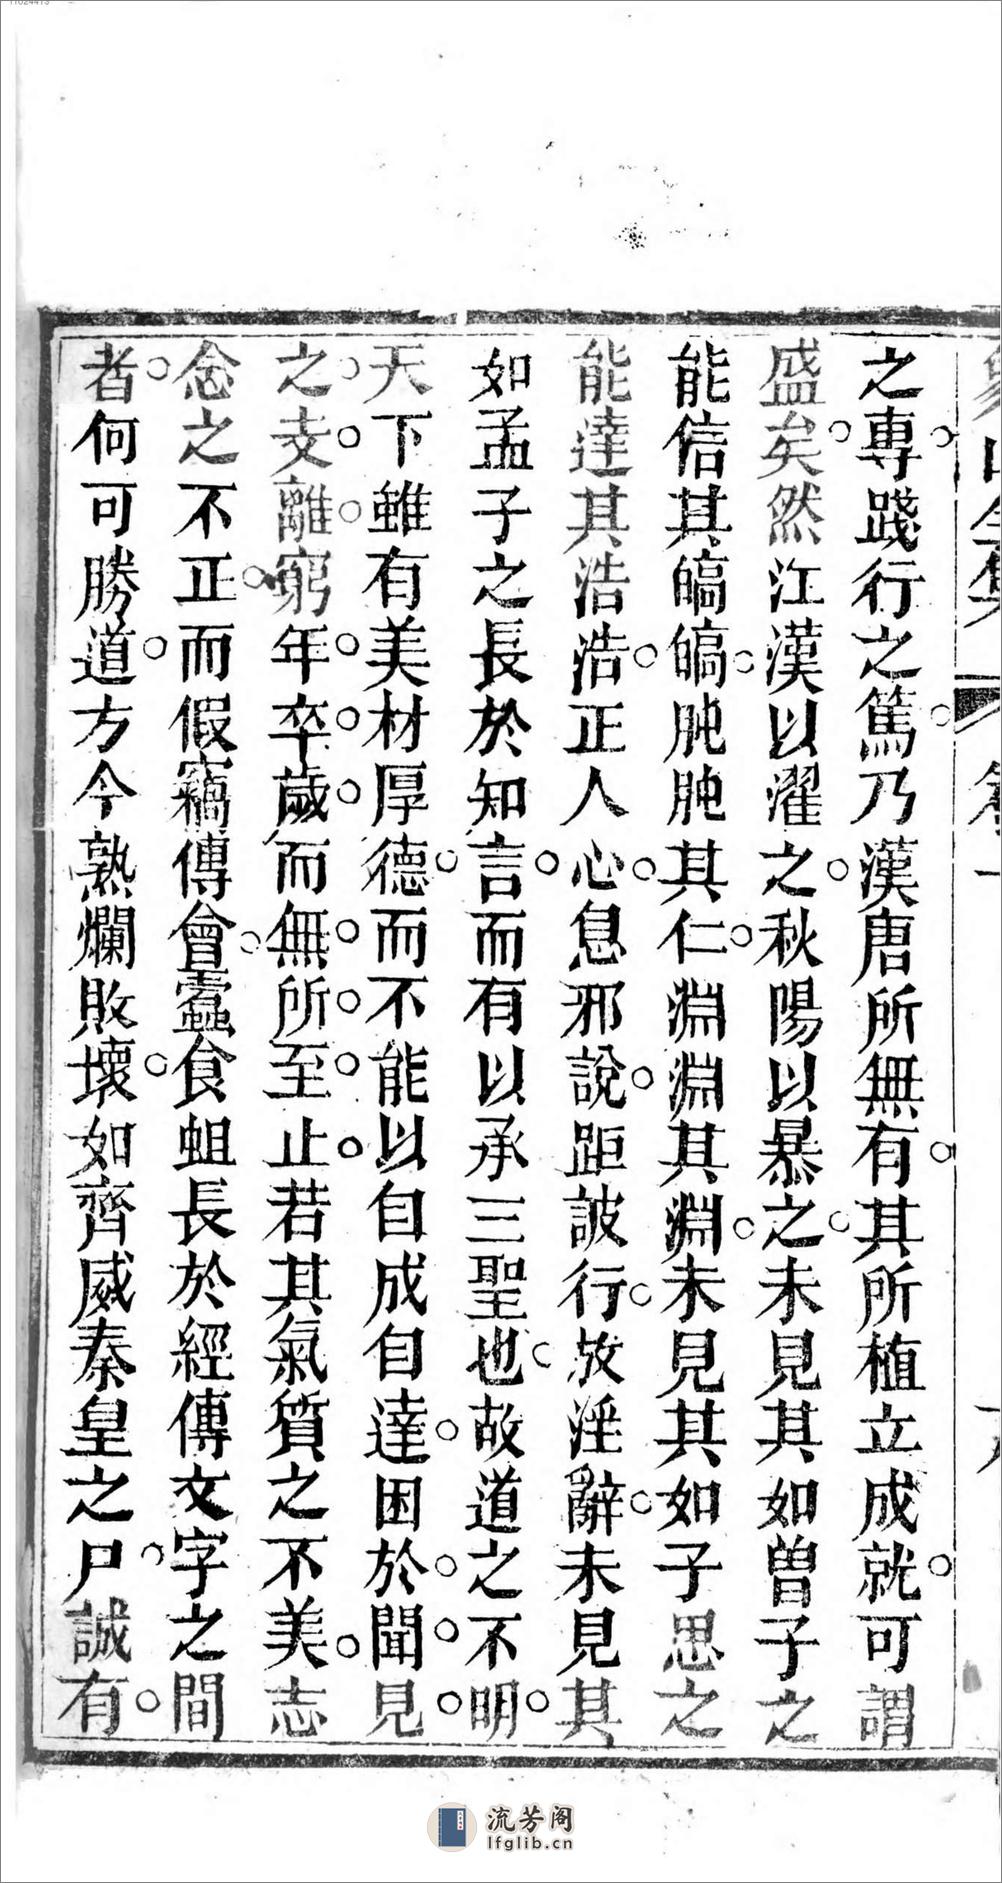 之專踐行之篤乃漢唐所無有其所植立成就可謂
盛矣然江漢以濯之秋陽以暴之未見其如曾子之
能信其皜皜肫肫其仁淵淵其淵未見其如子思之
能達其浩浩正人心息邪說距詖行放淫辭未見其
如孟子之長於知言而有以承三聖也故道之不明
天下雖有美材厚德而不能以自成自達困於聞見
之支離窮年卒歲而無所至止若其氣質之不美志
念之不正而假竊傳會蠹食蛆長於經傳文字之間
者何可勝道方今熟爛敗壞如齊威秦皇之尸誠有
流芳阁
lfglib.cn